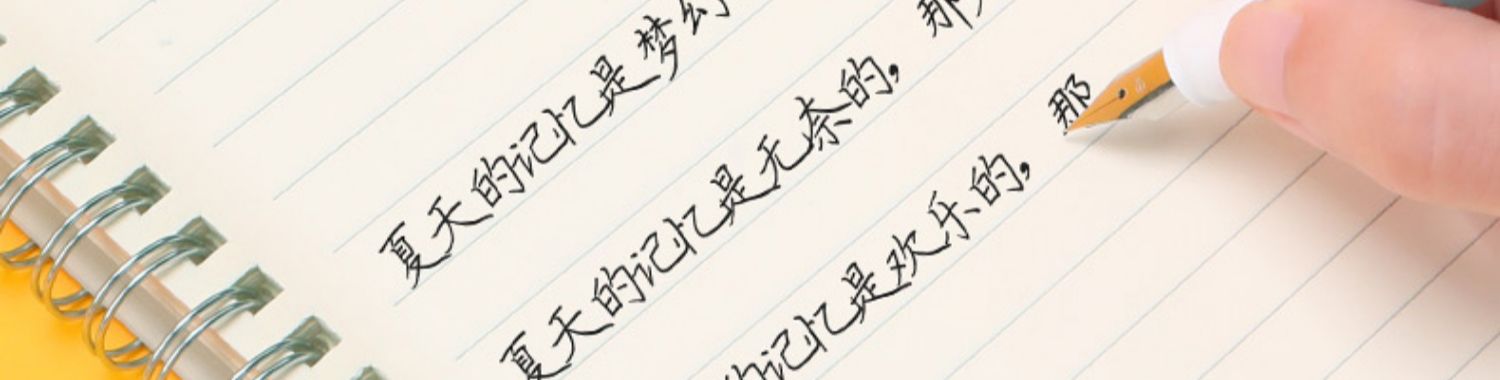 夏天的记忆是梦幻
夏天的记忆是无奈的，那
的记忆是欢乐的，那